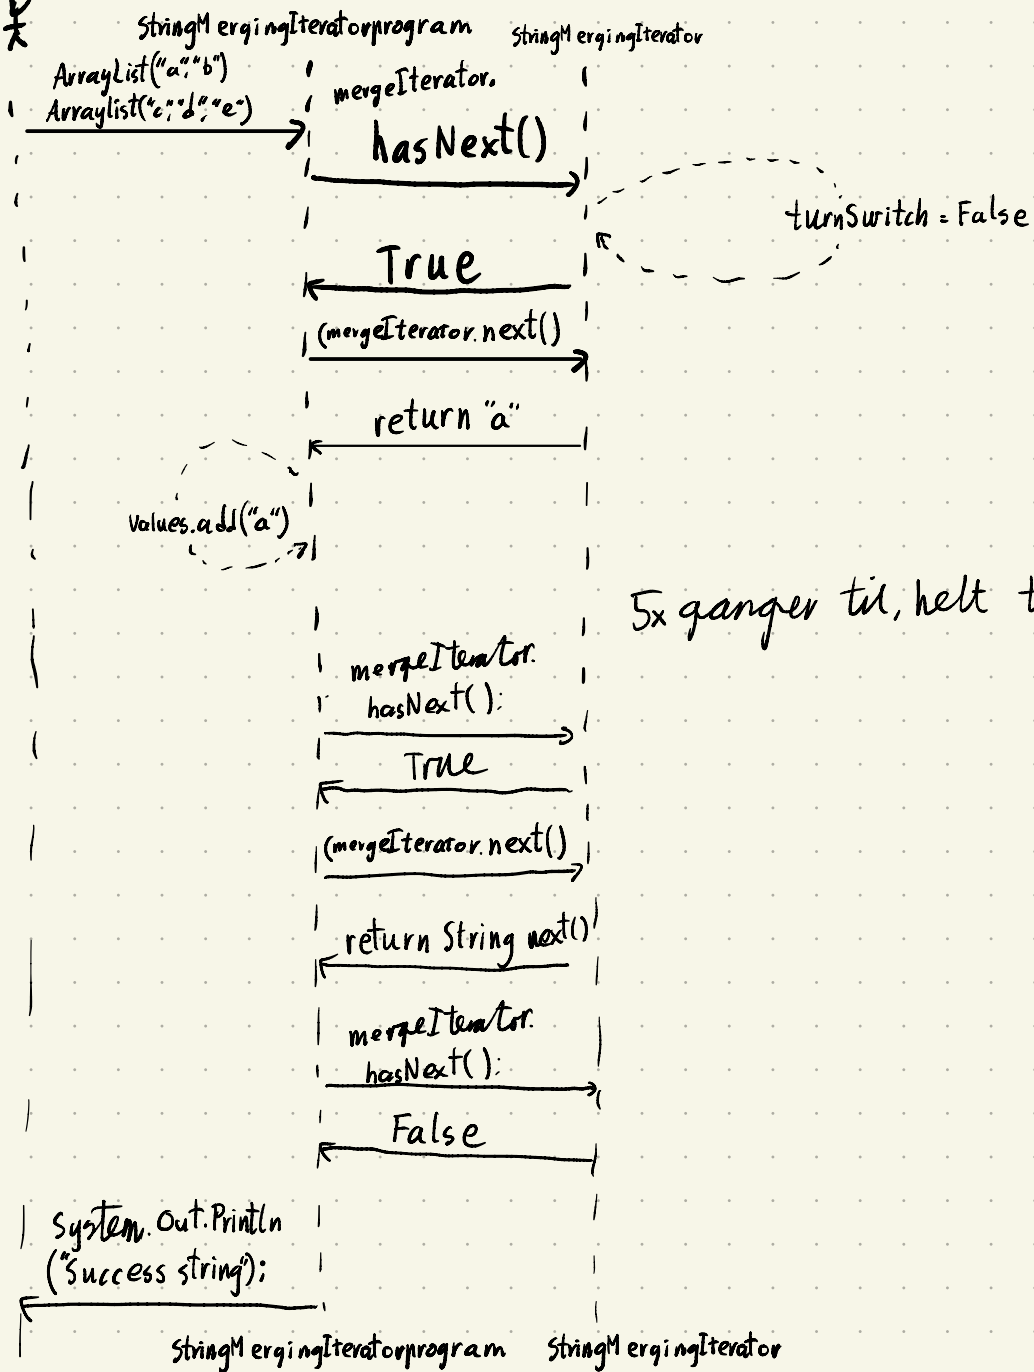 StringMergingIteratorprogram
StringMergingIterator
ArrayList("a","b")
Arraylist("c","d","e")
mergeIterator.
hasNext()
turnSwitch = False
True
(mergeIterator.next()
return "a"
values.add("a")
5x ganger til, helt
mergeIterator.
hasNext():
True
(mergeIterator.next()
return String next()
mergeIterator.
hasNext():
False
System.Out.Println
("Success string");
StringMergingIteratorprogram
StringMergingIterator